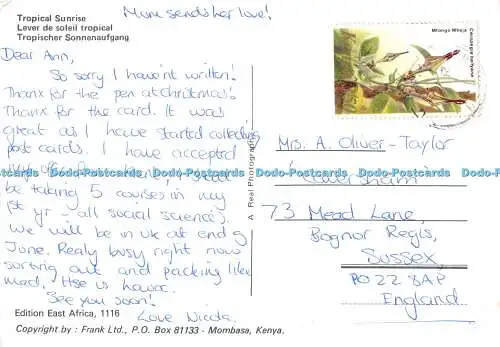 Mum sends her love!
Tropical Sunrise
Lever de soleil tropical
Tropischer Sonnenaufgang
Dear Ann,
So sorry I haven't written!
Thanx for the pen at Christmas!
Thanx for the card. It was
great as I have started collecting
post cards. I have accepted
be taking 5 courses in my
1st yr - all social sciences.
We will be in UK at end of
June. Realy busy right now
sorting out and packing like
mad. Hse is havoc.
See you soon!
Love Nicola.
Edition East Africa, 1116
Copyright by : Frank Ltd., P.O. Box 81133 - Mombasa, Kenya.
A Real Photograph
Mtonga Mfinja
Canarina
Mrs. A. Oliver-Taylor
73 Mead Lane,
Bognor Regis,
Sussex
PO22 8AP
England
Dodo-Postcards Dodo-Postcards Dodo-Postcards Dodo-Postcards